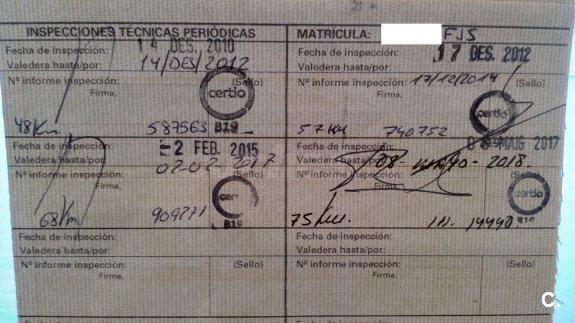 INSPECCIONES TÉCNICAS PERIÓDICAS
Fecha de inspección: 14 DES. 2010
Valedera hasta/por: 14/DES/2012
Nº informe inspección: (Sello)
Firma,
certio
B19
48Km 587563
MATRÍCULA: FJS
Fecha de inspección: 17 DES. 2012
Valedera hasta/por:
17/12/2014
Nº informe inspección: (Sello)
Firma,
certio
57KM 740752
Fecha de inspección: -2 FEB. 2015
Valedera hasta/por: 02-02-2017
Nº informe inspección: (Sello)
Firma,
B19
68Km 909271
Fecha de inspección: MAIG 2017
Valedera hasta/por: 08 2018.
Nº informe inspección: (Sello)
Firma,
certio
75
Fecha de inspección:
Valedera hasta/por:
Nº informe inspección: (Sello)
Firma,
Fecha de inspección:
Valedera hasta/por:
Nº informe inspección: (Sello)
Firma,
C.